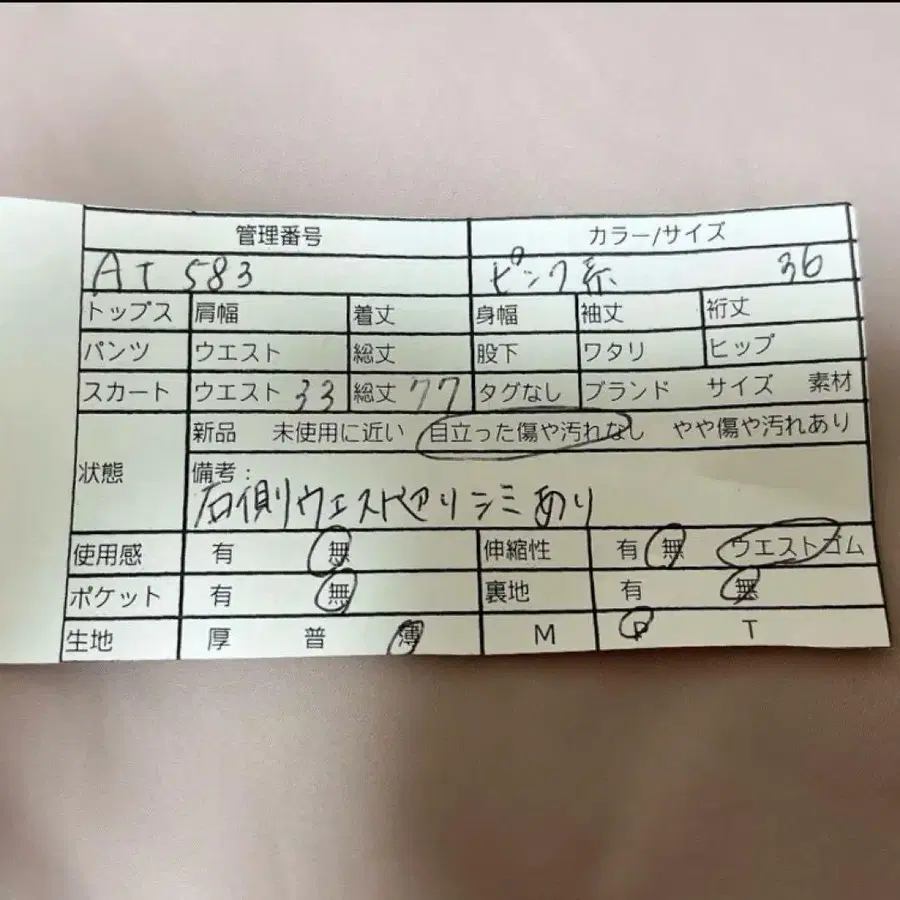 管理番号 カラー/サイズ
AT 583 ピンク系 36
トップス 肩幅 着丈 身幅 袖丈 裄丈
パンツ ウエスト 総丈 股下 ワタリ ヒップ
スカート ウエスト 33 総丈 77 タグなし ブランド サイズ 素材
状態 新品 未使用に近い 目立った傷や汚れなし やや傷や汚れあり
備考:
右側ウエスト シミあり
使用感 有 無 伸縮性 有 無 ウエストゴム
ポケット 有 無 裏地 有 無
生地 厚 普 薄 M P T